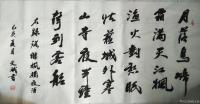 月落烏啼
霜满天江楓
漁火對愁眠
姑蘇城外寒
山寺夜半鐘
聲到客船
楓橋夜泊